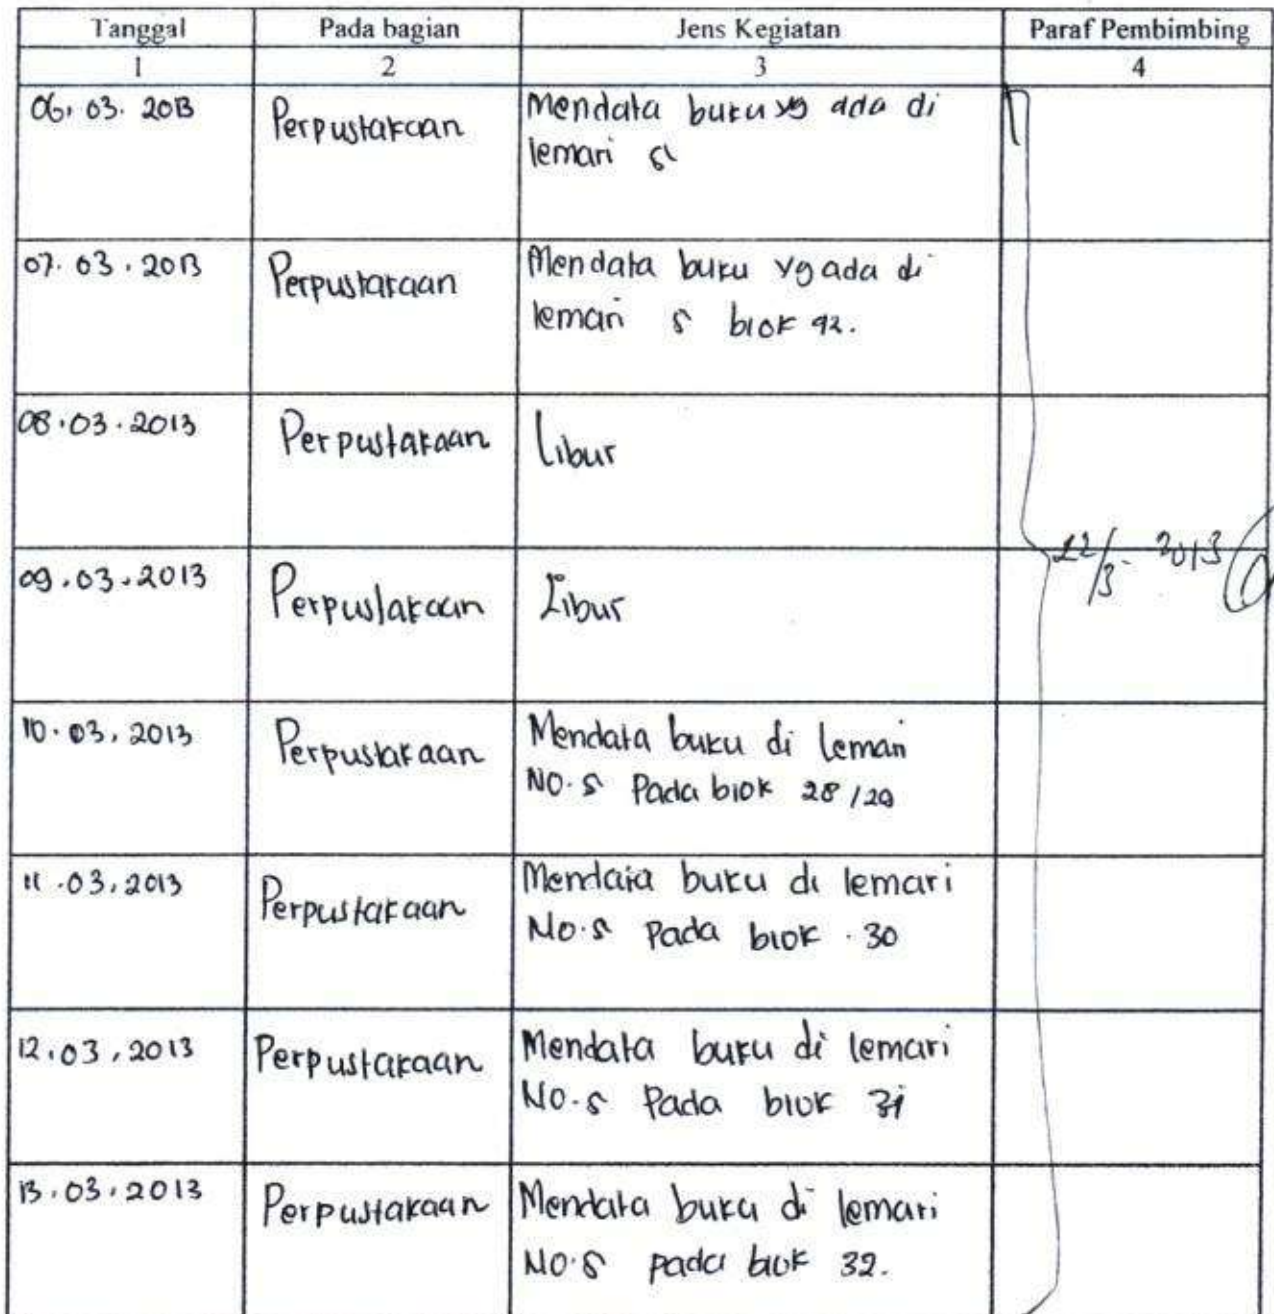 Tanggal Pada bagian Jens Kegiatan Paraf Pembimbing
1 2 3 4
06. 03. 2013 Perpustakaan Mendata buku yg ada di
lemari 5
07. 03. 2013 Perpustakaan Mendata buku yg ada di
lemari 5 blok 92.
08. 03. 2013 Perpustakaan Libur
22/3- 2013
09. 03. 2013 Perpustakaan Libur
10. 03. 2013 Perpustakaan Mendata buku di lemari
NO. 5 Pada blok 28 / 29
11. 03. 2013 Perpustakaan Mendata buku di lemari
No. 5 Pada blok . 30
12. 03. 2013 Perpustakaan Mendata buku di lemari
NO. 5 Pada blok 31
13. 03. 2013 Perpustakaan Mendata buku di lemari
NO. 5 pada blok 32.